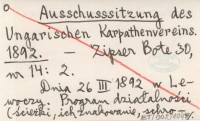 Ausschusssitzung des
Ungarischen Karpathenvereins.
1892. — Zipser Bote 30,
nr 14: 2.
Dnia 26 III 1892 w Le-
woczy. Program działalności
(ścieżki, ich znakowanie, schro-